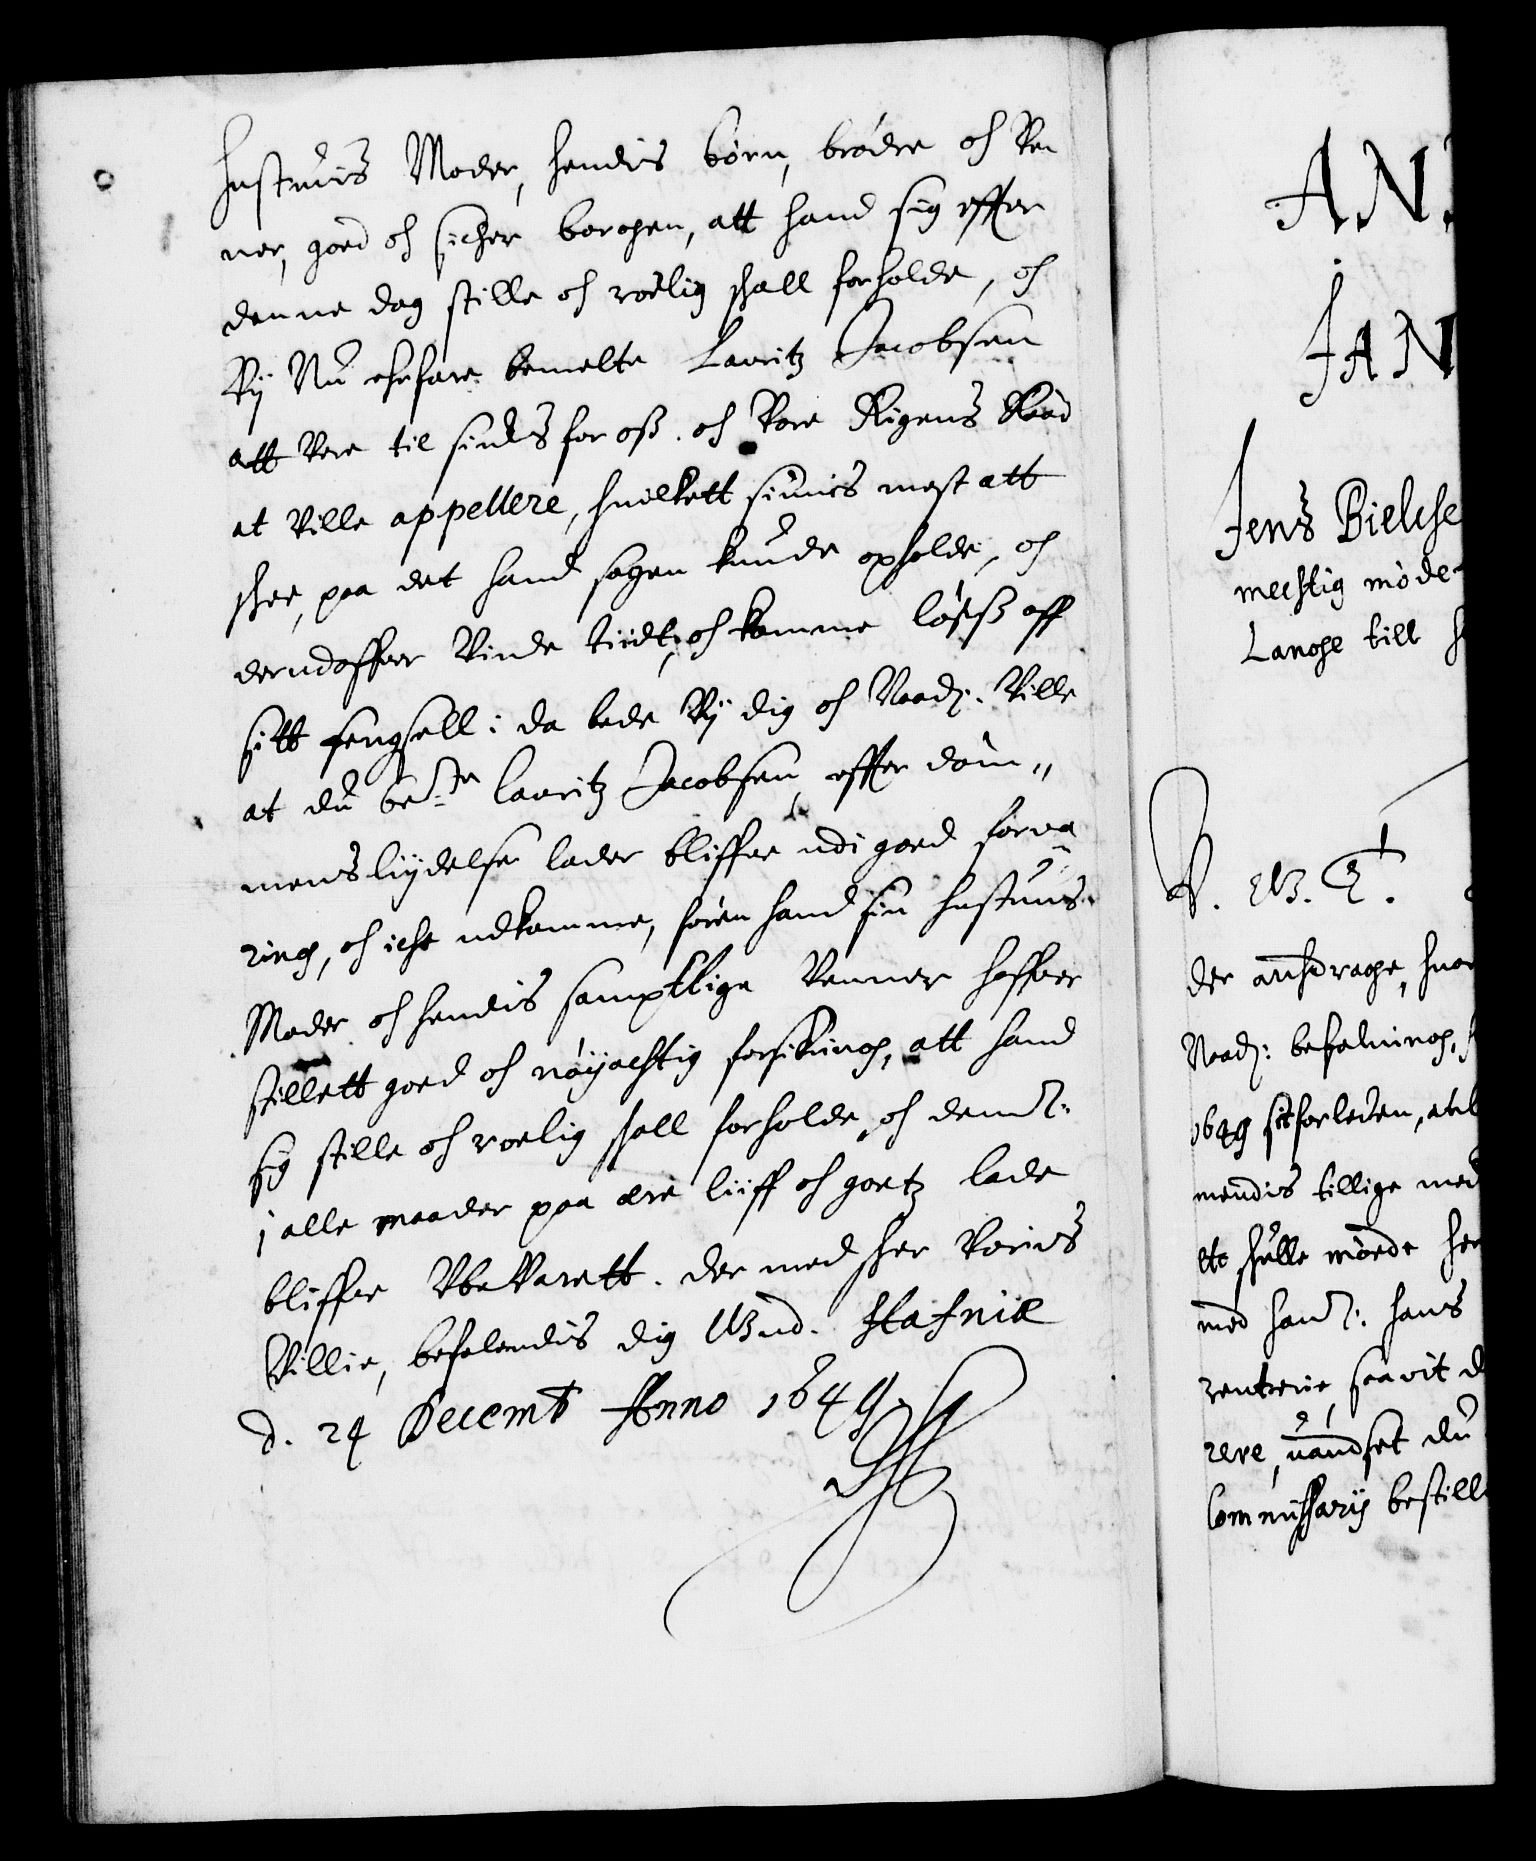 hustruis Moder, hendis børn, brødre och Ven
ner, goed och sicher borgen, att hand sig effter
denne dag stille och roelig schall forholde, och
Vij Nu erfare bemelte Lauritz Jacobsen
att Vere til sinds for oss och Vore Rigens Raad
at Ville appellere, huilkett siunis mest att
schee, paa det hand sagen kunde opholde, och
derudoffuer Vinde tiidt, och komme løess aff
sitt fengsell: da bede Vij dig och Naadz: Ville
at du be:te Lauritz Jacobsen, effter døm„
mens liydelse lader bliffue udi goed forva
ring, och iche udkomme, førend hand sin hustruis
Moder och hendis samptlige Venner haffuer
stillett goed och nøyachtig forsikring, att hand
sig stille och roelig schall forholde, och dennem
j alle maader paa ære liiff och goetz lade
bliffue Ubevarett. der med scher Voris
Villie, befalendis dig Gud. Hafniæ
d. 24 Decemb Anno 1649.
AN
JAN
Jens Bielche
mechtig møde
Lange till
V. G. T.
der andrage, huor
Naadz: befalning,
1649 sitforleden, at
mendis tillige med
etc schulle møede her
med hans
renterie, saavit d
rere, uandset du
Commissarij bestill